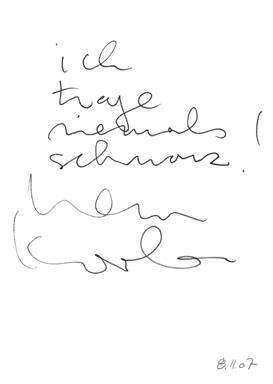 ich
trage
niemals !
schwarz.
8.11.07